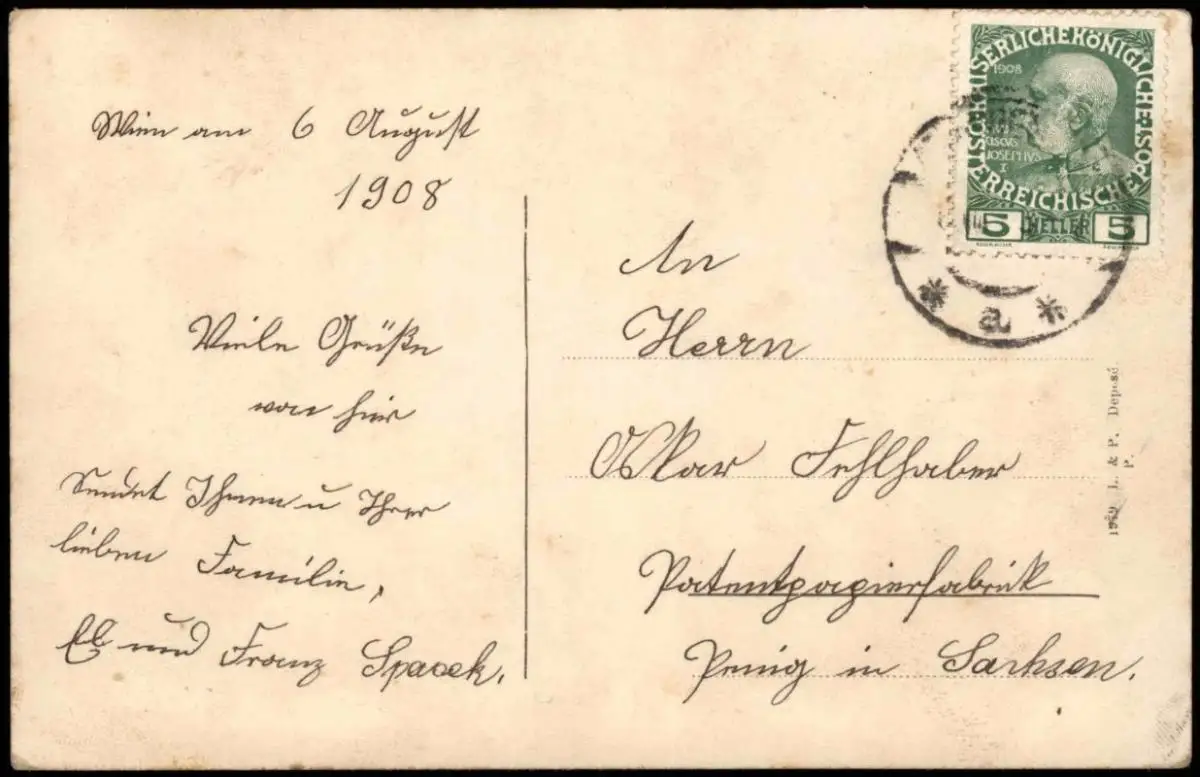 Wien am 6 August
1908
Viele Grüße
von hier
Sendet Ihnen u Ihrer
lieben Familie,
und Franz Spacek.
KAISERLICHE KÖNIGLICHE ÖSTERREICHISCHE POST
1908
JOSEPHVS
I
5 HELLER 5
a
An
Herrn
Oskar Fehlhaber
Patentpapierfabrik
Penig in Sachsen.
L. & P. Deposé.
P.